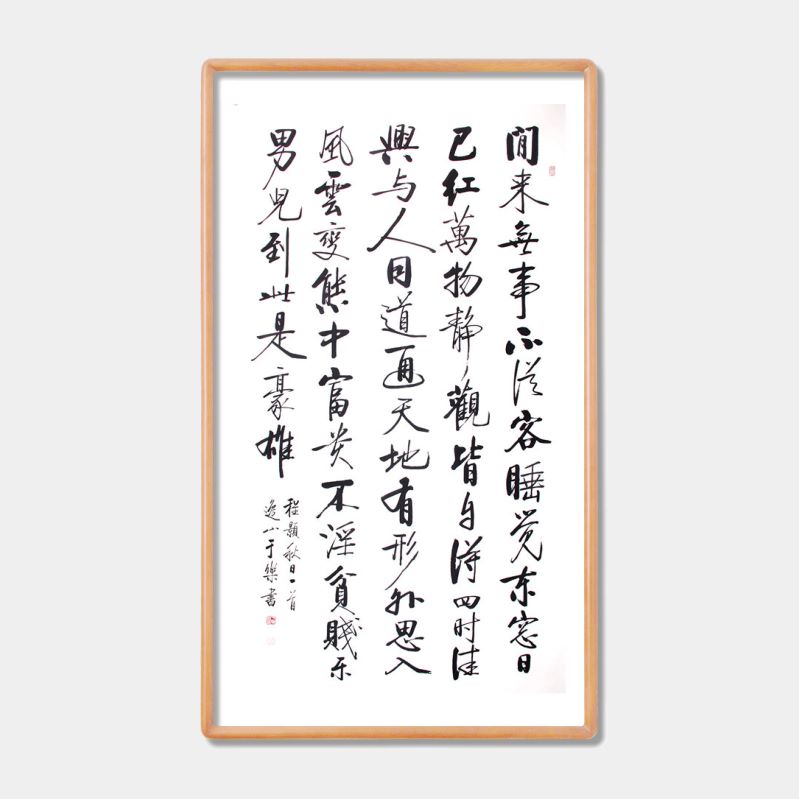 閒来無事不從容睡覺东窓日
已红萬物静觀皆自得四时佳
興与人同道通天地有形外思入
風雲變態中富贵不淫貧賤乐
男兒到此是豪雄
程颢秋日一首
于樂書